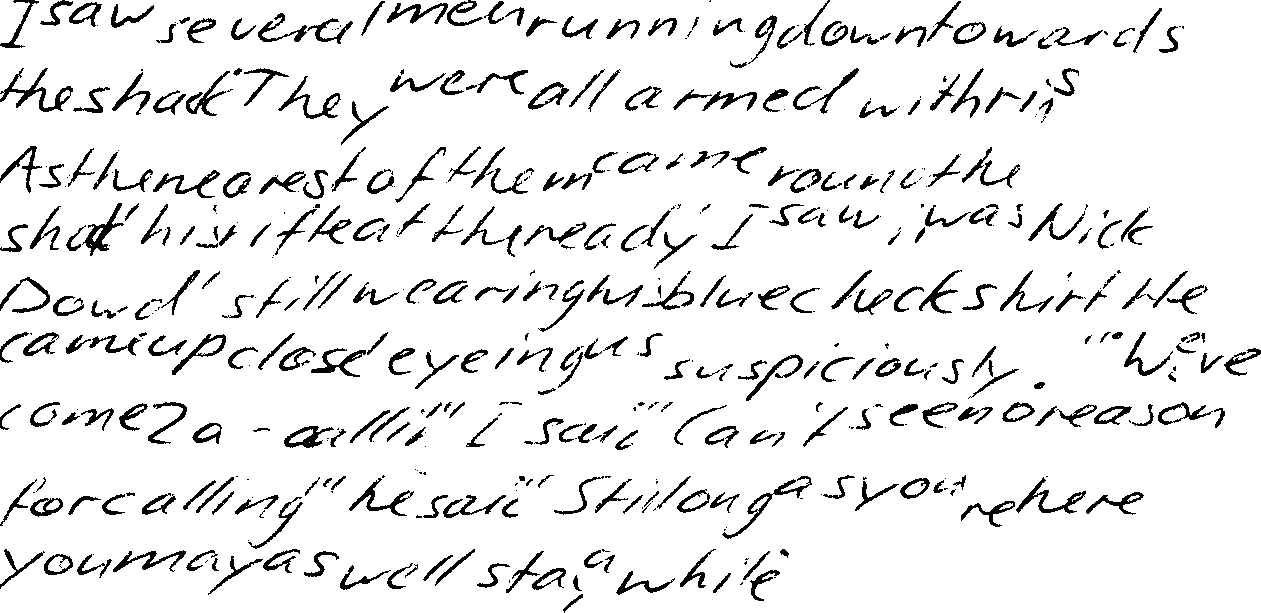 I saw several men running down towards
the shack. They were all armed with
As the nearest of them came round the
shack, his rifle at the ready, I saw it was Nick
Dowd, still wearing his blue check shirt. He
came up close, eyeing us suspiciously. "We've
come a-callin'" I said. "Can't see no reason
for calling" he said. "Still long as you're here
you may as well stay a while